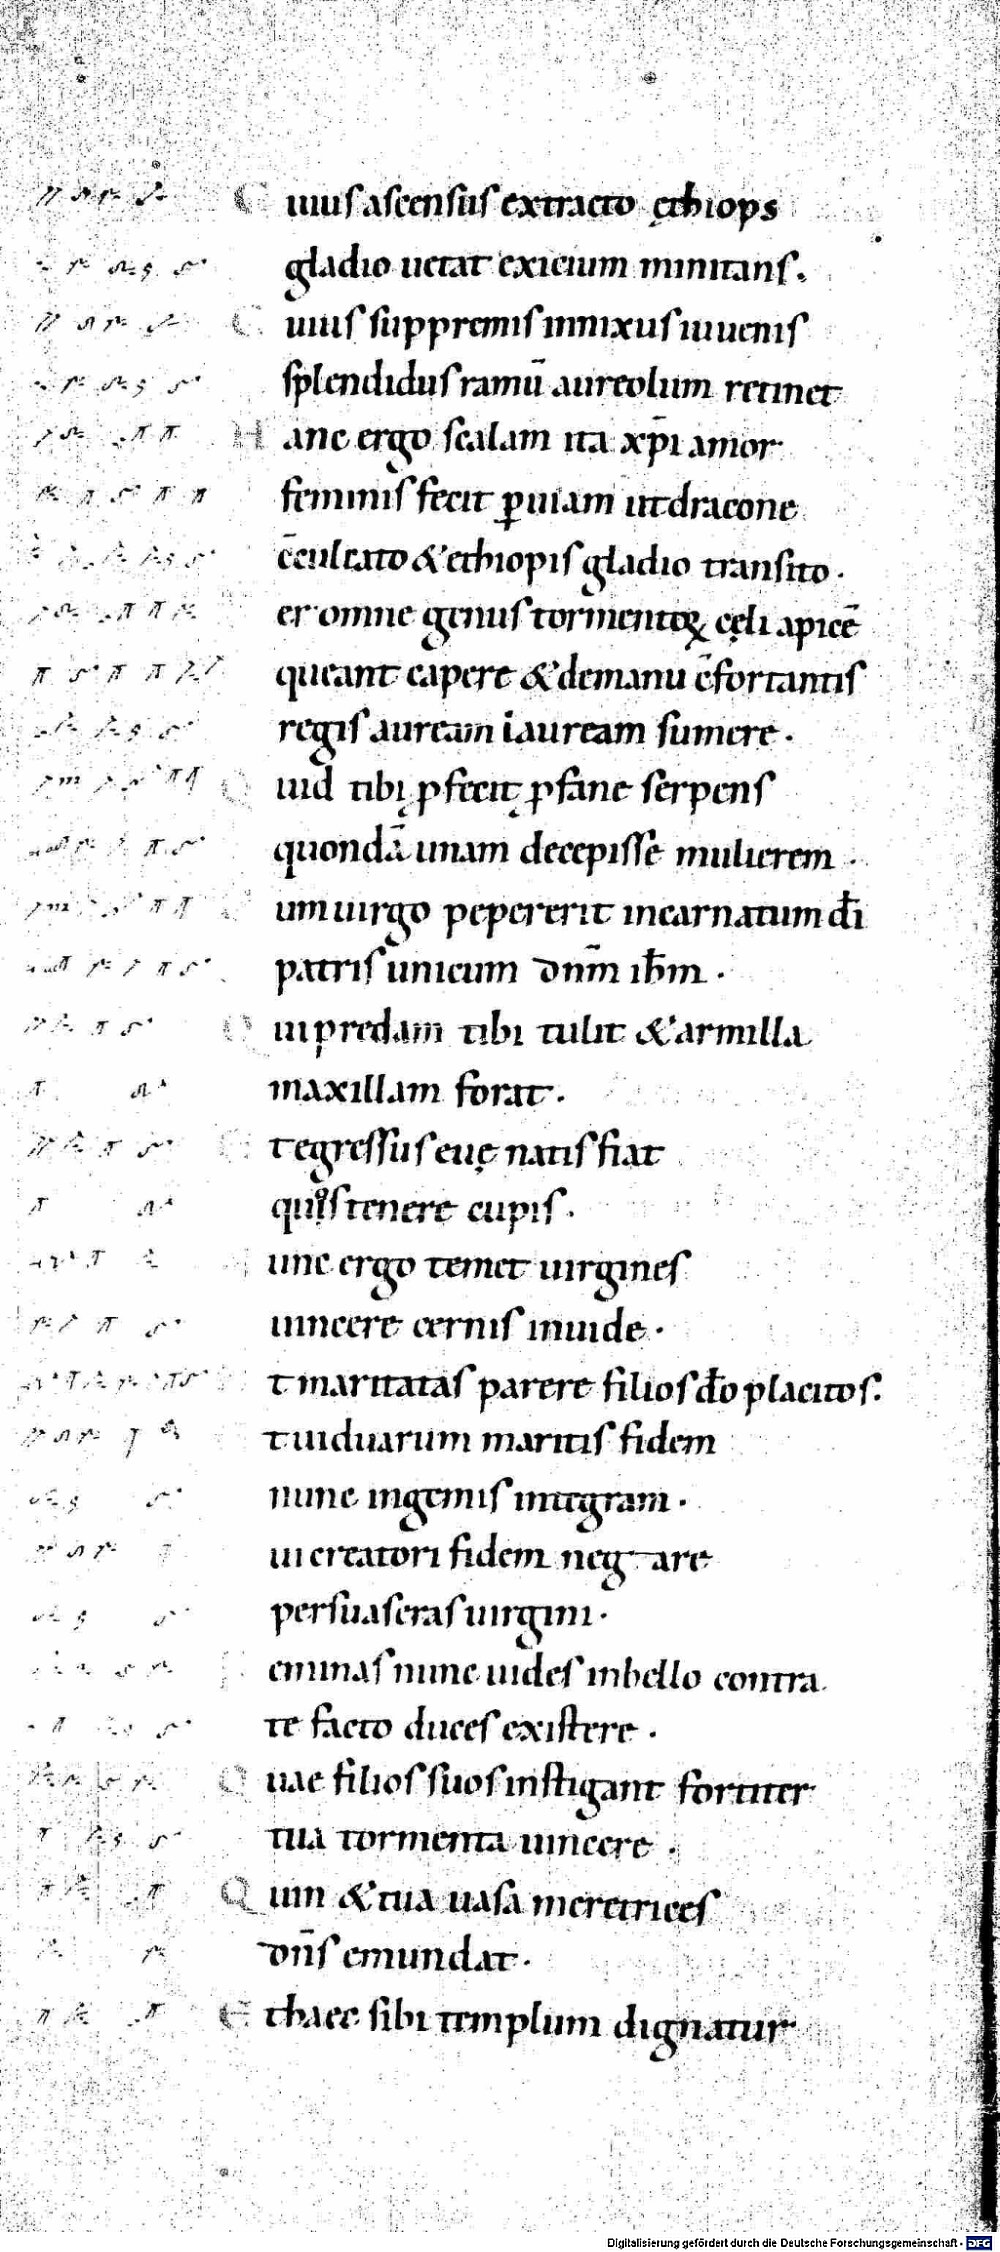 Cuius ascensus extracto ęthiops
gladio uetat exicium minitans.
Cuius suppremis innixus iuuenis
splendidus ramū aureolum retinet
Hanc ergo scalam ita xp̄i amor
feminis fecit ꝑuiam ut dracone
c̄culcato & ethiopis gladio transito.
er omne genus tormentoꝝ cęli apicē
queant capere & de manu c̄fortantis
regis auream lauream sumere.
Quid tibi ꝓfecit ꝓfane serpens
quondā unam decepisse mulierem.
um uirgo pepererit incarnatum dī
patris unicum dnm̄ ihm̄.
Qui predam tibi tulit & armilla
maxillam forat.
t egressus euę natis fiat
quos tenere cupis.
unc ergo temet uirgines
uincere cernis inuide.
t maritatas parere filios dō placitos.
t uiduarum maritis fidem
nunc ingemis integram.
ui creatori fidem negare
persuaseras uirgini.
Feminas nunc uides in bello contra
te facto duces existere.
Quae filios suos instigant fortiter
tua tormenta uincere.
Quin & tua uasa meretrices
dn̄s emundat.
Et haec sibi templum dignatur
Digitalisierung gefördert durch die Deutsche Forschungsgemeinschaft - DFG